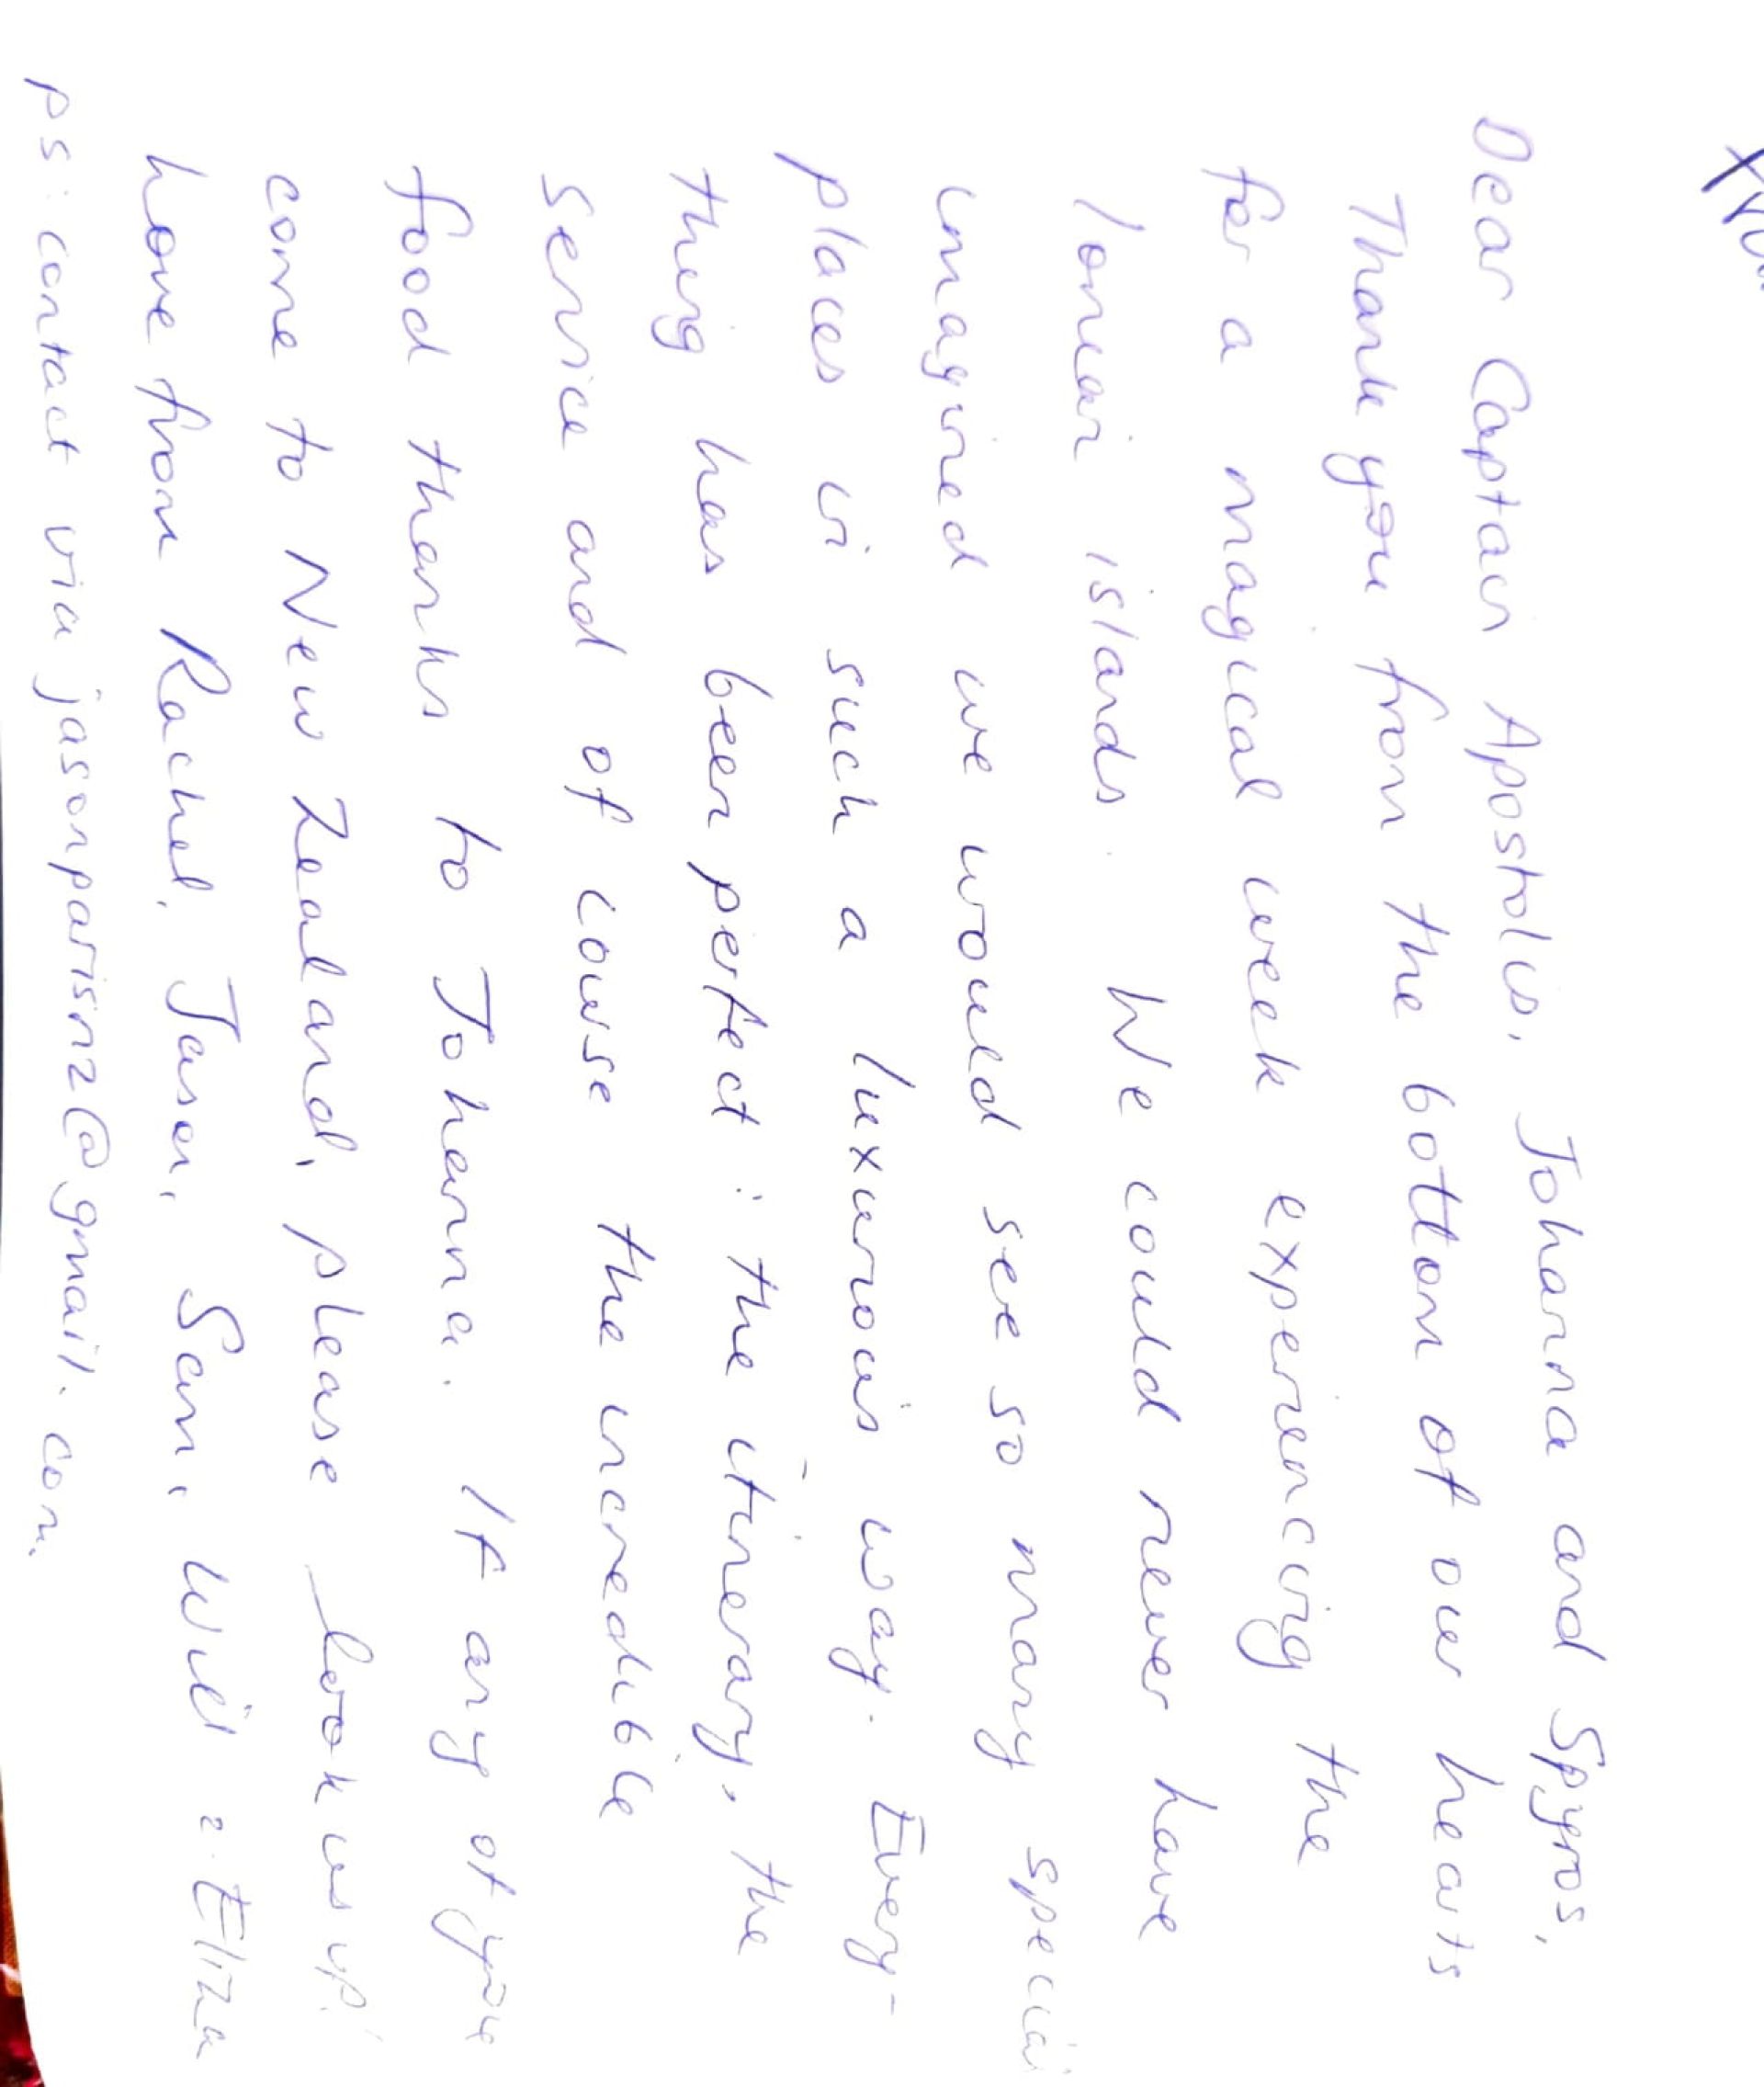 Dear Captain Apostolis, Johanna and Spyros,
Thank you from the bottom of our hearts
for a magical week experiencing the
Ionian islands. We could never have
imagined we would see so many special
places in such a luxurious way. Every-
thing has been perfect: the itinerary, the
service and of course the incredible
food thanks to Johanna. If any of you
come to New Zealand, please look us up!
love from Rachel, Jason, Sam, Will & Eliza
ps: contact via jasonparisnz@gmail.com.